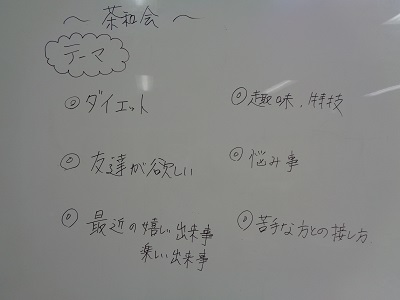 ～ 茶和会 ～
テーマ
◎ ダイエット
◎ 趣味、特技
◎ 友達が欲しい
◎ 悩み事
◎ 最近の嬉しい出来事
楽しい出来事
◎ 苦手な方との接し方